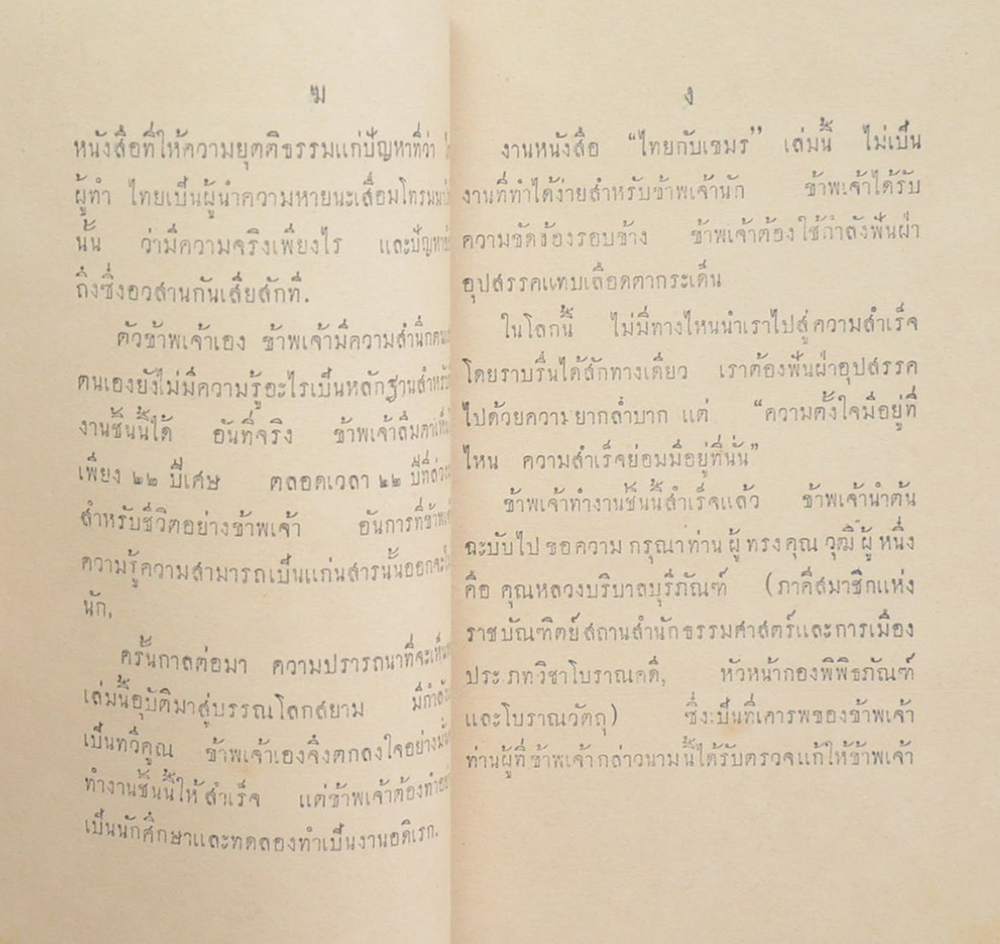 ฆ
หนังสือที่ให้ความยุตติธรรมแก่ปัญหาที่ว่า
ผู้ทำ ไทยเป็นผู้นำความหายนะเสื่อมโทรมมา
นั้น ว่ามีความจริงเพียงไร และปัญหา
ถึงซึ่งอวสานกันเสียสักที.
ตัวข้าพเจ้าเอง ข้าพเจ้ามีความสำนึก
ตนเองยังไม่มีความรู้อะไรเป็นหลักฐานสำหรับ
งานชิ้นนี้ได้ อันที่จริง ข้าพเจ้าลืมตา
เพียง ๒๒ ปีเศษ ตลอดเวลา ๒๒ ปีที่ล่วง
สำหรับชีวิตอย่างข้าพเจ้า อันการที่
ความรู้ความสามารถเป็นแก่นสารนั้นออกจะ
นัก.
ครั้นกาลต่อมา ความปรารถนาที่จะเห็น
เล่มนี้อุบัติมาสู่บรรณโลกสยาม มีกำลัง
เป็นทวีคูณ ข้าพเจ้าเองจึงตกลงใจอย่าง
ทำงานชิ้นนี้ให้สำเร็จ แต่ข้าพเจ้าต้องทำ
เป็นนักศึกษาและทดลองทำเป็นงานอดิเรก.
ง
งานหนังสือ “ไทยกับเขมร” เล่มนี้ ไม่เป็น
งานที่ทำได้ง่ายสำหรับข้าพเจ้านัก ข้าพเจ้าได้รับ
ความขัดข้องรอบข้าง ข้าพเจ้าต้องใช้กำลังฟันฝ่า
อุปสรรคแทบเลือดตากระเด็น
ในโลกนี้ ไม่มีทางไหนนำเราไปสู่ความสำเร็จ
โดยราบรื่นได้สักทางเดียว เราต้องฟันฝ่าอุปสรรค
ไปด้วยความยากลำบาก แต่ “ความตั้งใจมีอยู่ที่
ไหน ความสำเร็จย่อมมีอยู่ที่นั่น”
ข้าพเจ้าทำงานชิ้นนี้สำเร็จแล้ว ข้าพเจ้านำต้น
ฉะบับไปขอความกรุณาท่านผู้ทรงคุณวุฒิผู้หนึ่ง
คือ คุณหลวงบริบาลบุรีภัณฑ์ (ภาคีสมาชิกแห่ง
ราชบัณฑิตย์สถานสำนักธรรมศาสตร์และการเมือง
ประเภทวิชาโบราณคดี, หัวหน้ากองพิพิธภัณฑ์
และโบราณวัตถุ) ซึ่งเป็นที่เคารพของข้าพเจ้า
ท่านผู้ที่ข้าพเจ้ากล่าวนามนี้ได้รับตรวจแก้ให้ข้าพเจ้า